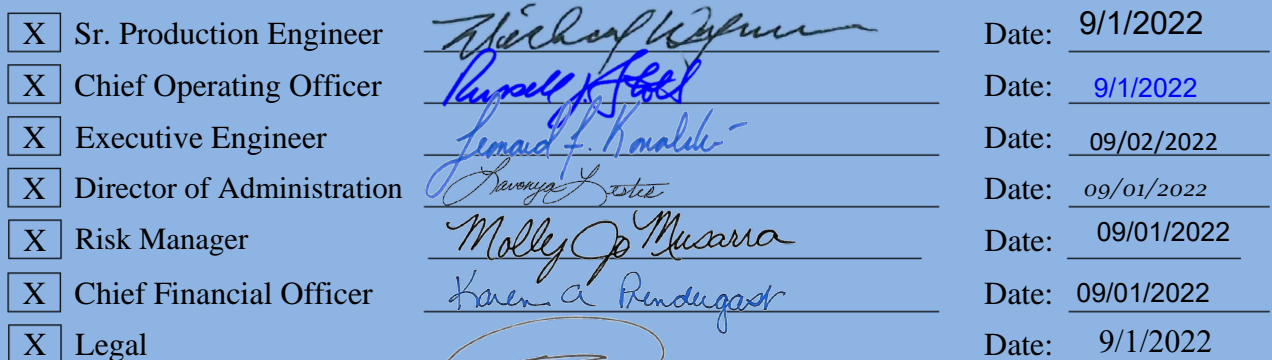 X Sr. Production Engineer Michael Date: 9/1/2022
X Chief Operating Officer Russell J. Date: 9/1/2022
X Executive Engineer Date: 09/02/2022
X Director of Administration Date: 09/01/2022
X Risk Manager Molly Jo Musarra Date: 09/01/2022
X Chief Financial Officer Karen A Pendergast Date: 09/01/2022
X Legal Date: 9/1/2022